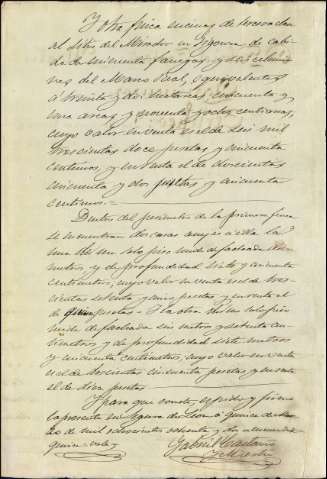 Y otra finca secano de tercera clase
al sitio del Mirador en Segura, de cabi-
da de cincuenta fanegas y seis celemi-
nes del Marco Real, equivalentes
á treinta y dos hectareas, cincuenta y
una areas y noventa y ocho centiareas,
cuyo valor en venta es el de seis mil
trescientas doce pesetas y cincuenta
centimos, y en renta el de doscientas
cincuenta y dos pesetas y cincuenta
centimos.
Dentro del perimetro de la primera finca
se encuentran dos casas
una de un solo piso mide de fachada
metros, y de profundidad siete y cincuenta
centimetros, cuyo valor en venta es el de tres-
cientas setenta y cinco pesetas y en renta el
de quince pesetas. Y la otra de un solo piso
mide de fachada seis metros y setenta cen-
timetros y de profundidad siete metros
y cincuenta centimetros, cuyo valor en venta
es el de doscientas cincuenta pesetas y en renta
el de diez pesetas
Y para que conste, expido y firmo
la presente en Segura de Leon á quince de
de mil ochocientos setenta y
quince vale
Gabriel